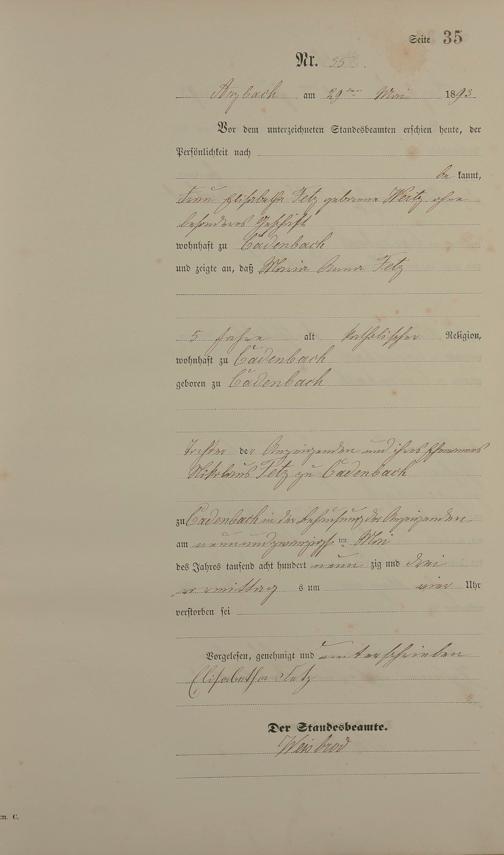 Seite 35
Nr. 35
Arzbach am 29ten Mai 1893
Vor dem unterzeichneten Standesbeamten erschien heute, der
Persönlichkeit nach
be kannt,
Frau Elisabetha Fetz geborene Weitz ohne
besonderes Geschäft
wohnhaft zu Cadenbach
und zeigte an, daß Maria Anna Fetz
5 Jahre alt katholischer Religion,
wohnhaft zu Cadenbach
geboren zu Cadenbach
Tochter der Anzeigenden und ihres Ehemannes
Nikolaus Fetz zu Cadenbach
zu Cadenbach in der Behausung der Anzeigenden
am neunundzwanzigsten Mai
des Jahres tausend acht hundert neun zig und drei
vormittags um vier Uhr
verstorben sei
Vorgelesen, genehmigt und unterschrieben
Elisabetha Fetz
Der Standesbeamte.
Weisbrod
C.